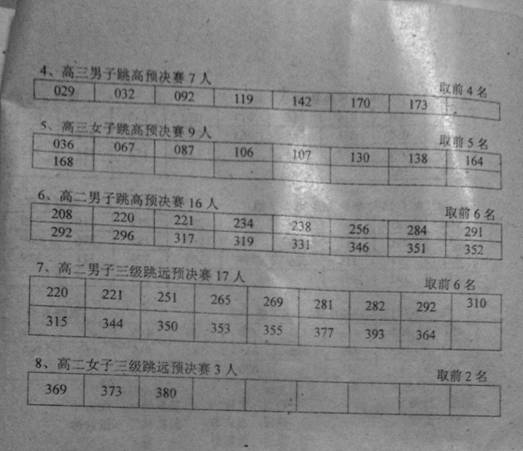 4、高三男子跳高预决赛7人 取前4名
029 032 092 119 142 170 173
5、高三女子跳高预决赛9人 取前5名
036 067 087 106 107 130 138 164
168
6、高二男子跳高预决赛16人 取前6名
208 220 221 234 238 256 284 291
292 296 317 319 331 346 351 352
7、高二男子三级跳远预决赛17人 取前6名
220 221 251 265 269 281 282 292 310
315 344 350 353 355 377 393 364
8、高二女子三级跳远预决赛3人 取前2名
369 373 380